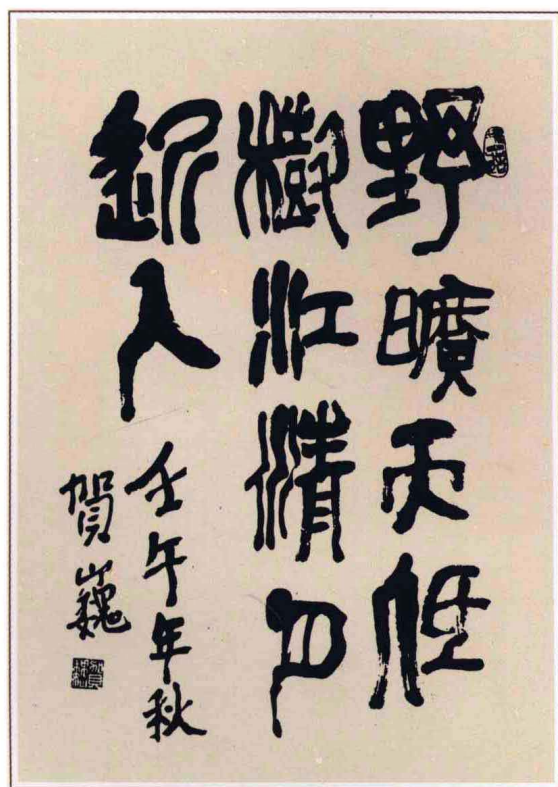 野曠天低
樹江清月
近人
壬午年秋
賀巍